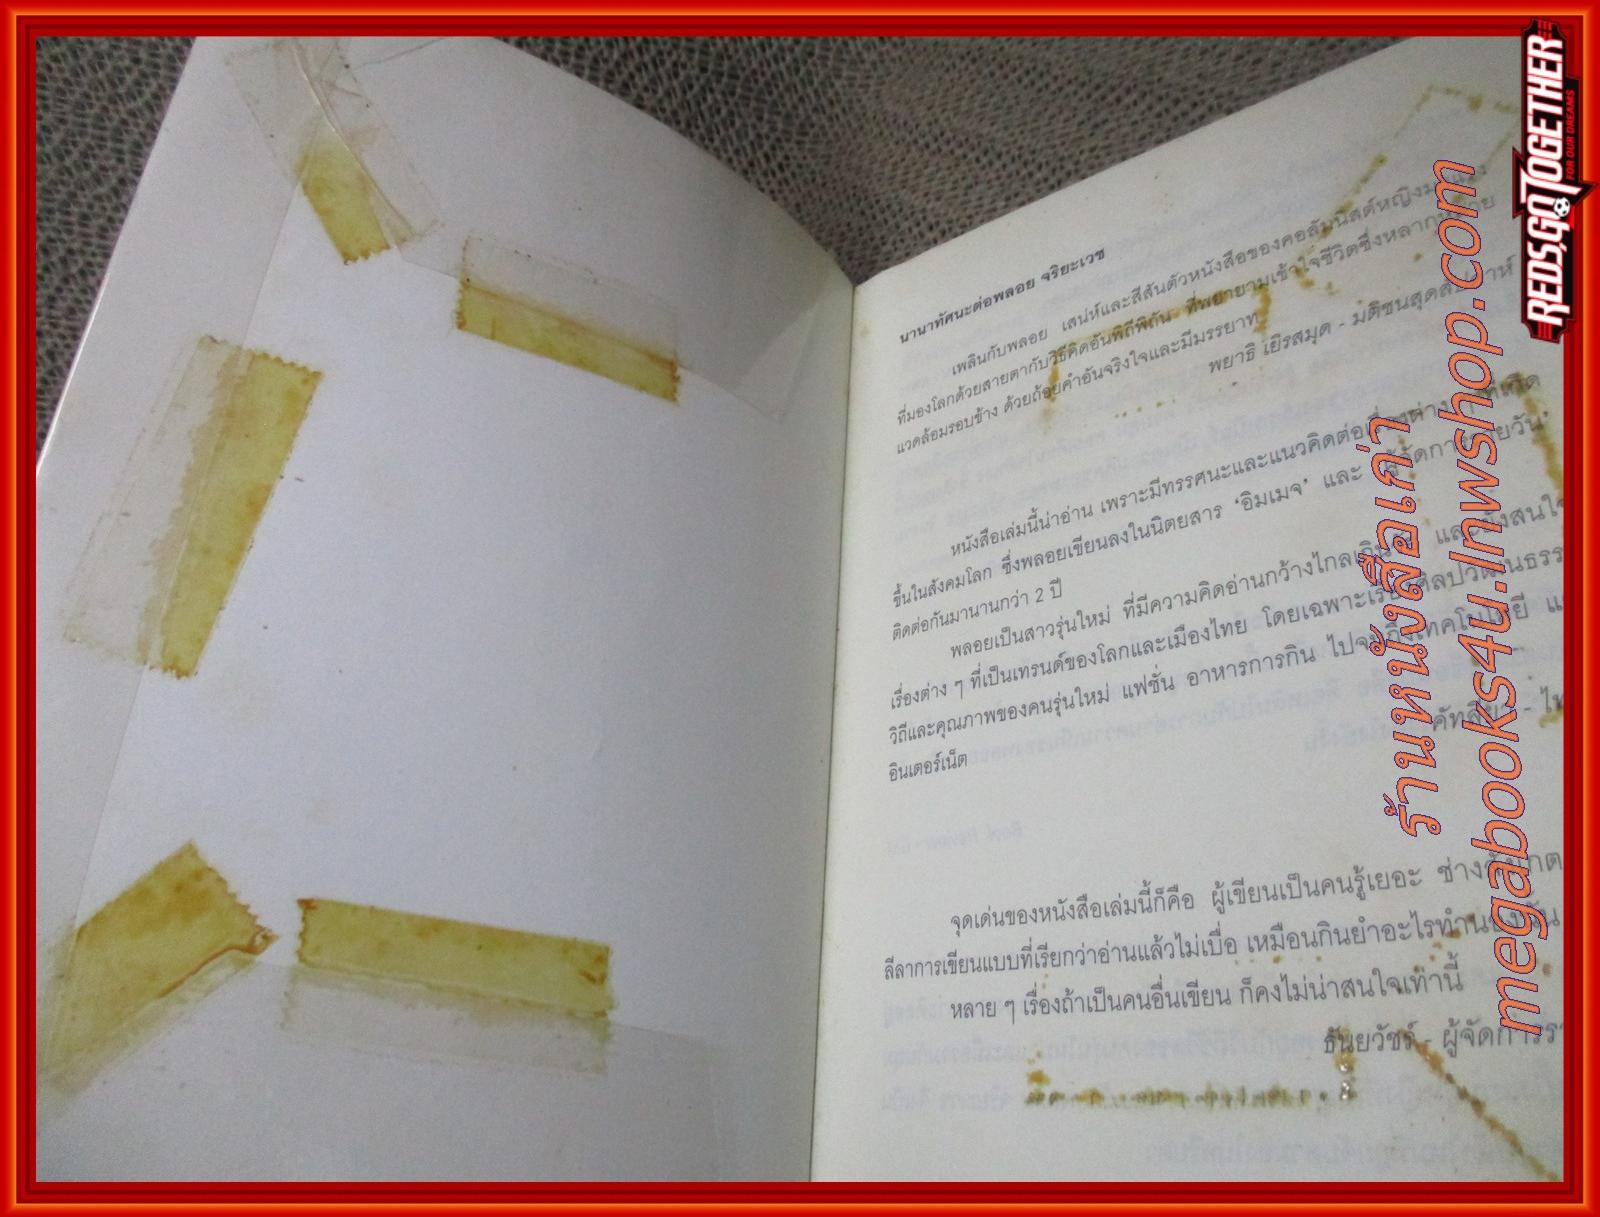 นานาทัศนะต่อพลอย จริยะเวช
เพลินกับพลอย เสน่ห์และสีสันตัวหนังสือของคอลัมนิสต์หญิง
ที่มองโลกด้วยสายตากับวิธีคิดอันพิถีพิถัน ที่พยายามเข้าใจชีวิตซึ่งหลาก
แวดล้อมรอบข้าง ด้วยถ้อยคำอันจริงใจและมีมรรยาท
พยาธิ เยิรสมุด - มติชนสุดสัปดาห์
หนังสือเล่มนี้น่าอ่าน เพราะมีทรรศนะและแนวคิดต่อเรื่องต่าง ๆ ที่เกิด
ขึ้นในสังคมโลก ซึ่งพลอยเขียนลงในนิตยสาร 'อิมเมจ' และ 'ผู้จัดการรายวัน'
ติดต่อกันมานานกว่า 2 ปี
พลอยเป็นสาวรุ่นใหม่ ที่มีความคิดอ่านกว้างไกลเกิน และยังสนใจ
เรื่องต่าง ๆ ที่เป็นเทรนด์ของโลกและเมืองไทย โดยเฉพาะเรื่องศิลปวัฒนธรร
วิถีและคุณภาพของคนรุ่นใหม่ แฟชั่น อาหารการกิน ไปจนถึงเทคโนโลยี แ
อินเตอร์เน็ต
คัทลียา - ไท
จุดเด่นของหนังสือเล่มนี้ก็คือ ผู้เขียนเป็นคนรู้เยอะ ช่างสังเกต
ลีลาการเขียนแบบที่เรียกว่าอ่านแล้วไม่เบื่อ เหมือนกินยำอะไรทำนองนั้น
หลาย ๆ เรื่องถ้าเป็นคนอื่นเขียน ก็คงไม่น่าสนใจเท่านี้
ธันยวัชร์ - ผู้จัดการรา
ร้านหนังสือเก่า
megabooks4u.lnwshop.com
REDSGOTOGETHER
FOR OUR DREAMS